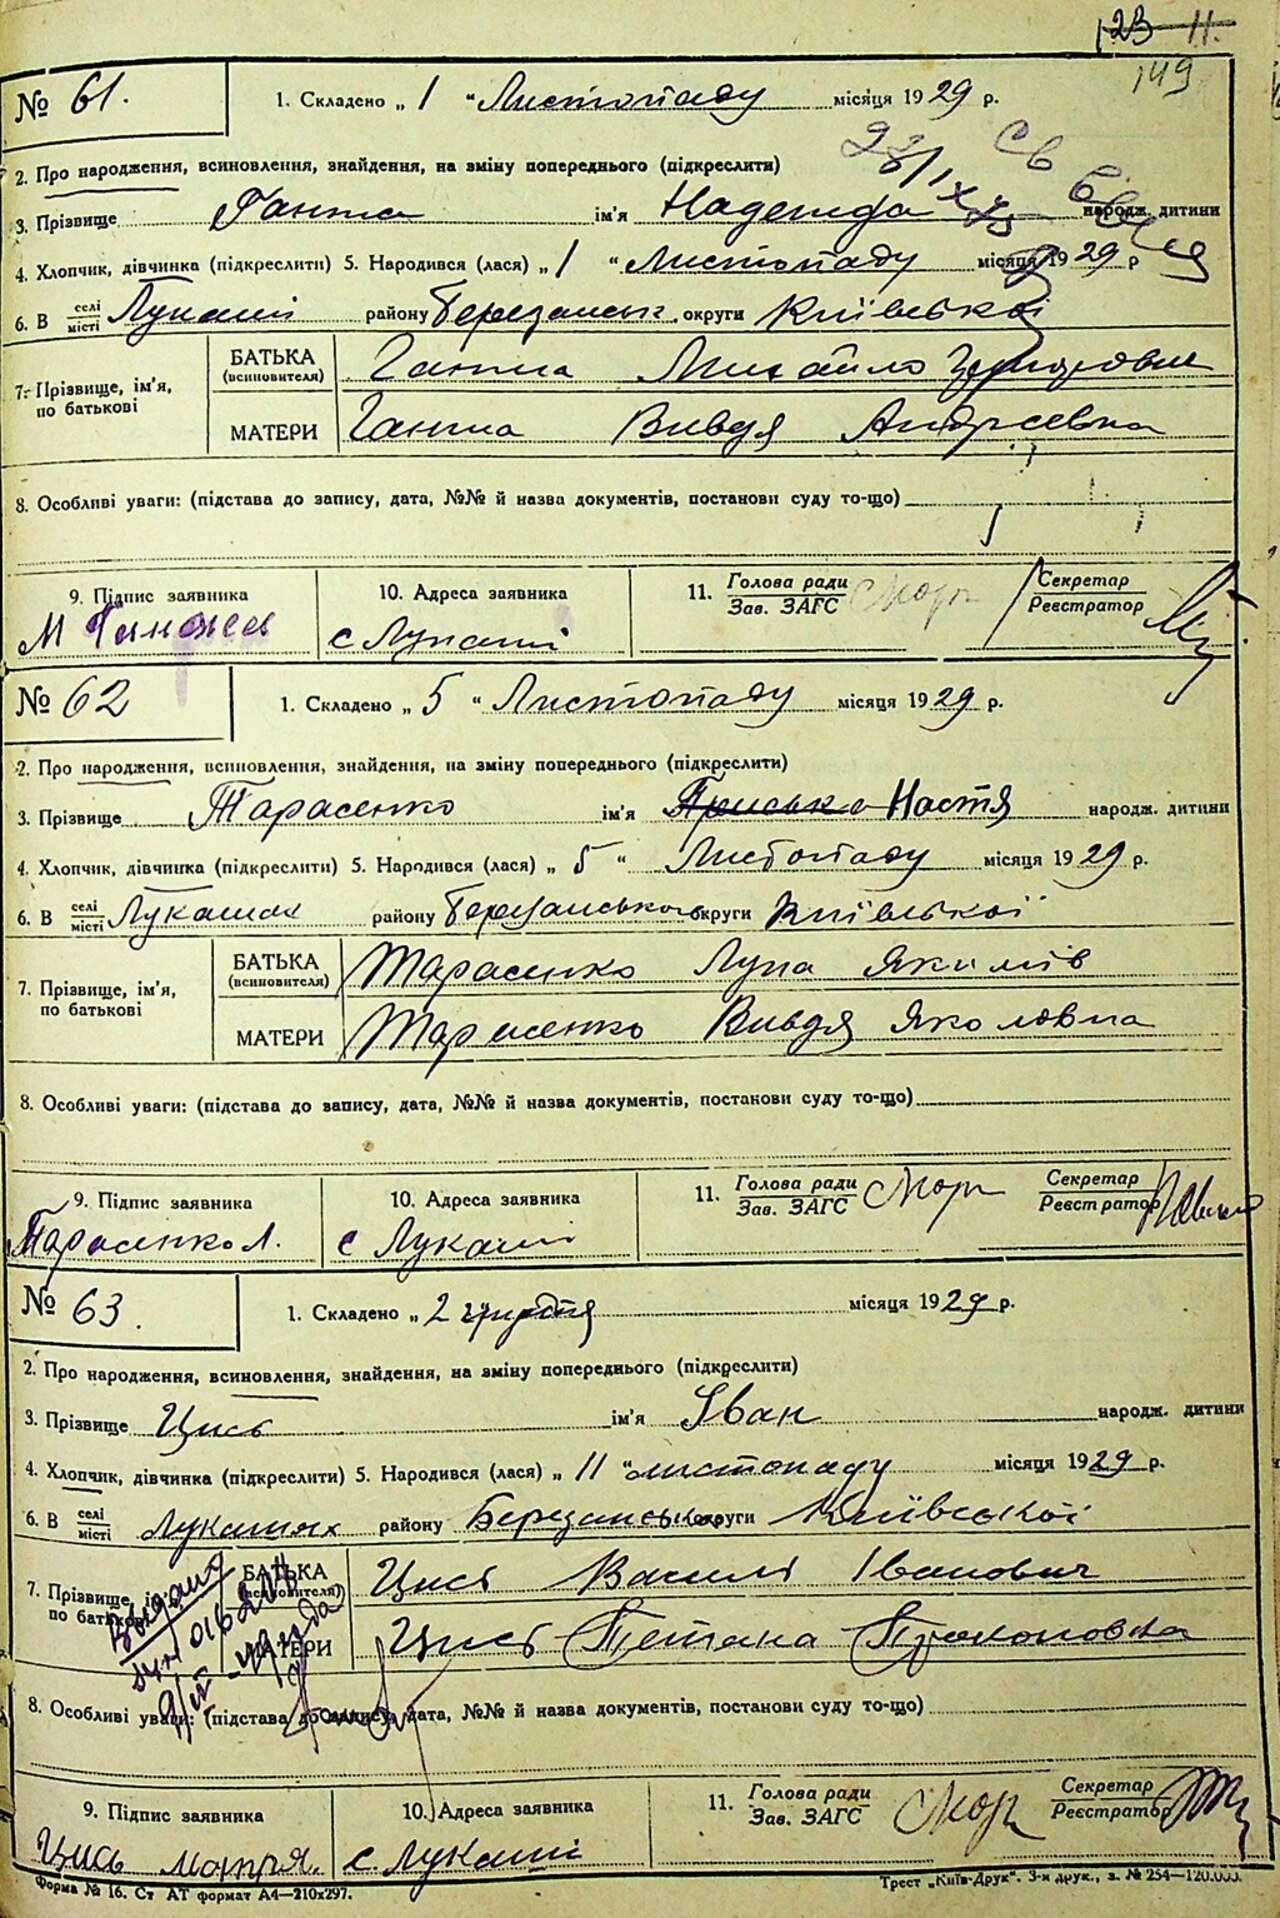 123 11.
149
№ 61. 1. Складено „ 1 " Листопаду місяця 1929 р.
2. Про народження, всиновлення, знайдення, на зміну попереднього (підкреслити)
3. Прізвище Ганжа ім'я Надежда народж. дитини
4. Хлопчик, дівчинка (підкреслити) 5. Народився (лася) „ 1 " Листопаду місяця 1929 р
6. В селі місті Лукаші району Березанськ. округи Київської
7. Прізвище, ім'я, по батькові
БАТЬКА (всиновителя) Ганжа Михайло
МАТЕРИ Ганжа Вивдя Андрєевна
8. Особливі уваги: (підстава до запису, дата, №№ й назва документів, постанови суду то-що)
9. Підпис заявника 10. Адреса заявника 11. Голова ради Зав. ЗАГС Секретар Реєстратор
М с Лукаші
№ 62 1. Складено „ 5 " Листопаду місяця 1929 р.
2. Про народження, всиновлення, знайдення, на зміну попереднього (підкреслити)
3. Прізвище Тарасенко ім'я Настя народж. дитини
4. Хлопчик, дівчинка (підкреслити) 5. Народився (лася) „ 5 " Листопаду місяця 1929 р.
6. В селі місті Лукашах району Березанського округи Київської
7. Прізвище, ім'я, по батькові
БАТЬКА (всиновителя) Тарасенко Лука Якимів
МАТЕРИ Тарасенко Вивдя Яковловна
8. Особливі уваги: (підстава до запису, дата, №№ й назва документів, постанови суду то-що)
9. Підпис заявника 10. Адреса заявника 11. Голова ради Зав. ЗАГС Секретар Реєстратор
Тарасенко Л. с Лукаші
№ 63. 1. Складено „ 2 грудня місяця 1929 р.
2. Про народження, всиновлення, знайдення, на зміну попереднього (підкреслити)
3. Прізвище Цись ім'я Іван народж. дитини
4. Хлопчик, дівчинка (підкреслити) 5. Народився (лася) „ 11 " листопаду місяця 1929 р.
6. В селі місті Лукашах району Березанського округи Київської
7. Прізвище, ім'я, по батькові
БАТЬКА (всиновителя) Цись Василь Іванович
МАТЕРИ Цись Тетяна Прокоповна
8. Особливі уваги: (підстава до запису, дата, №№ й назва документів, постанови суду то-що)
9. Підпис заявника 10. Адреса заявника 11. Голова ради Зав. ЗАГС Секретар Реєстратор
Цись с Лукаші
Форма № 16. Ст АТ формат А4—210х297. Трест „Київ-Друк". 3-я друк., з. № 254—120.000.